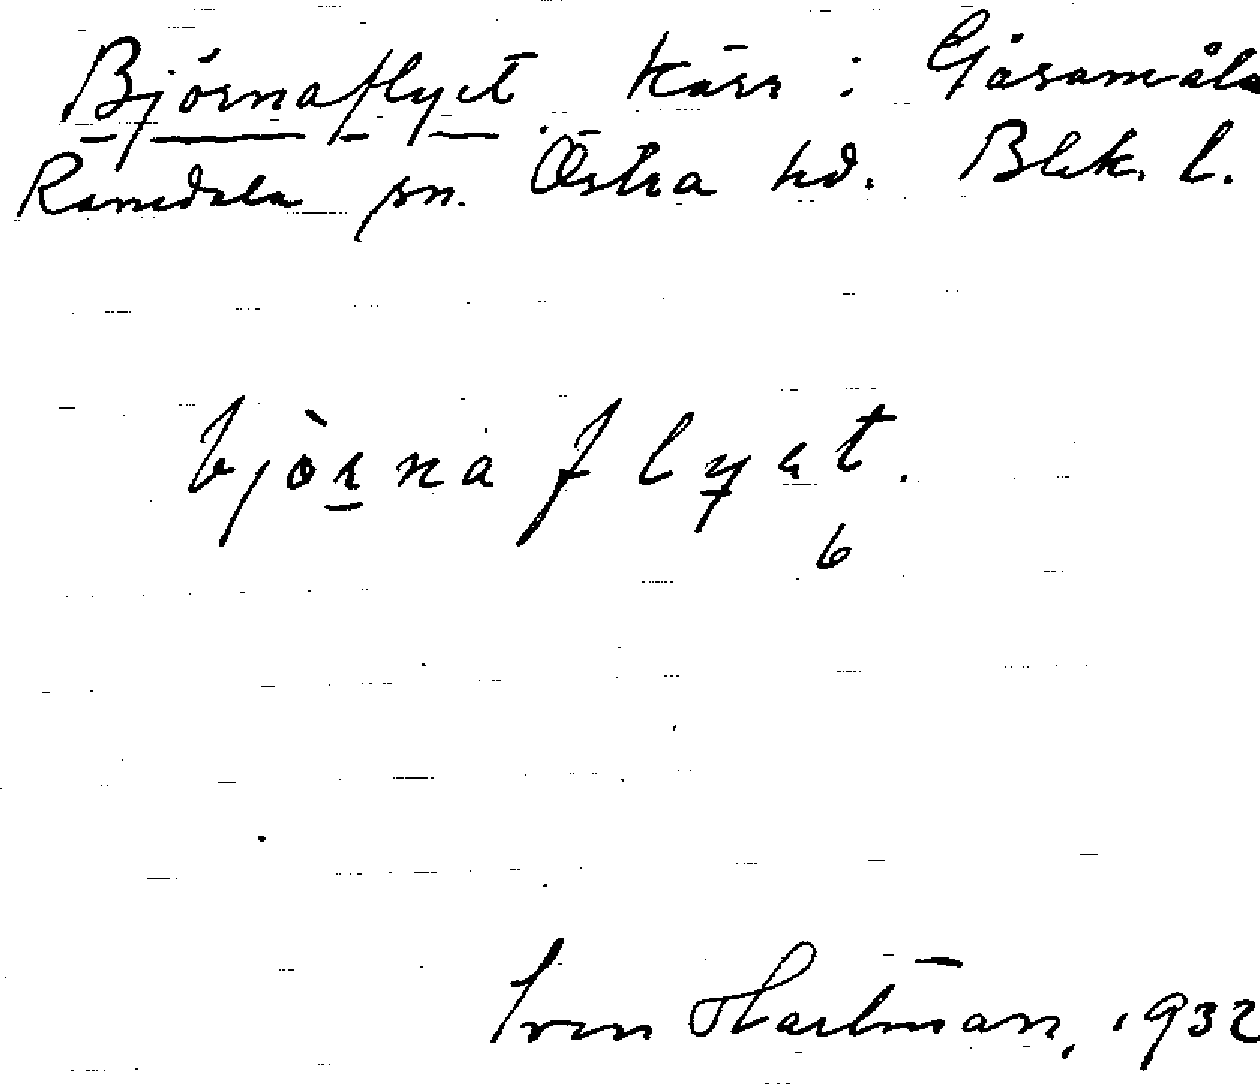 Björnaflyet. Kärr i Gåsamåla
Ramdala sn. Östra hd. Blek. l.
bjò̱rnaflyət.
6
Sven Hartman, 1932